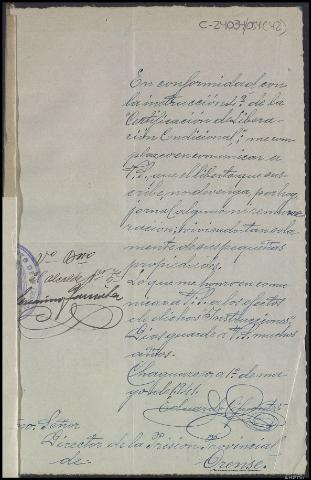 C-24034/054(42)
En conformidad con
la instrucción 4ª de la
"Certificación de Libera-
ción Condicional," me com-
plazco en comunicar a
V.S. que el liberto que sus-
cribe, no devenga, por hoy,
jornal alguno ni remune-
ración; viviendo tan sola-
mente de sus pequeñas
propiedades.
Lo que me honro en comu-
nicar a V.S. a los efectos
de dichas "Instrucciones".
Dios guarde a V.S. muchos
años.
Chaguazoso a 1º de ma-
yo de 1941.
Eduardo
Vº Bno
El Alcalde
Señor
Director de la Prisión Provincial
de
Orense.